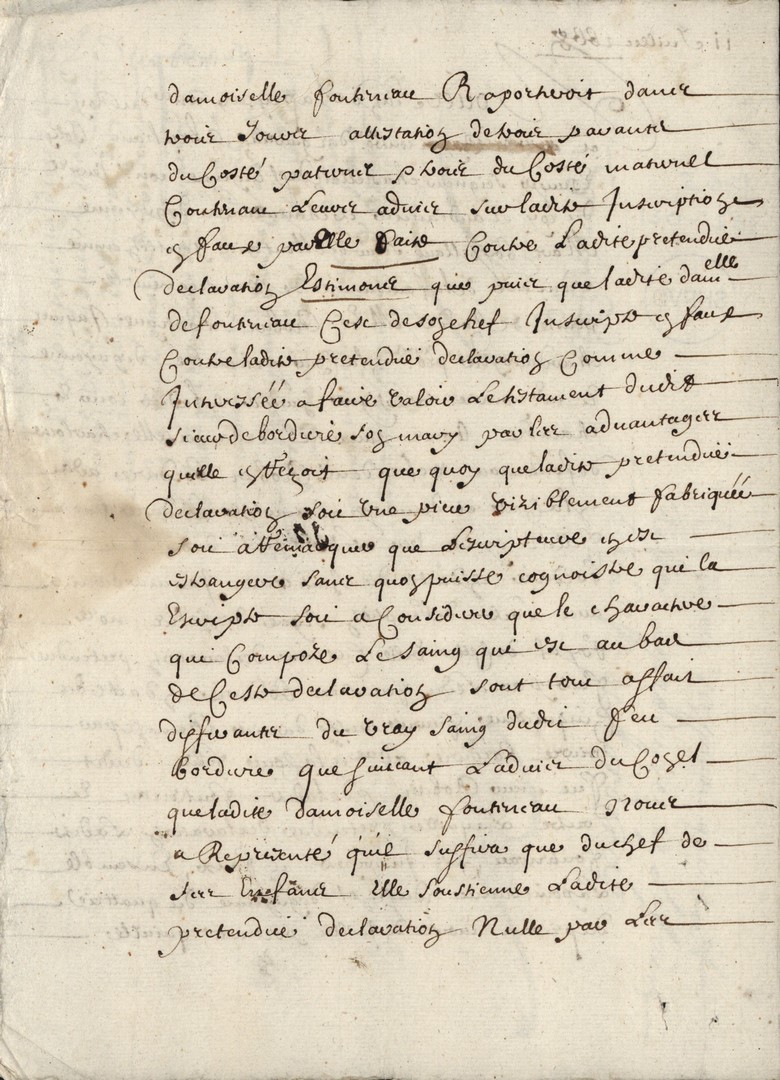 damoiselle fonteneau Raporteroit dans
trois Jours attestation de trois parants
du Costé paternel & trois du Costé maternel
Contenant Leurs advis sur ladite Inscription
en faux par Elle faite Contre Ladite pretendüe
declaration Estimons que puis que ladite damelle
de fonteneau C'est de son chef Inscripte en faux
Contre ladite pretendüe declaration Comme
Interessée a faire valoir Le testament dudit
sieur de borderie son mary par les advantages
quelle en Reçoit que quoy que ladite pretendüe
declaration soit une piece visiblement fabriquée
soit attendu que L'escripteure en est
estrangere sans quon puisse cognoistre qui la
Escripte soit a Considerer que le charactere
qui Compoze Le saing qui est au bas
de Ceste declaration sont tout affait
differants du vray saing dudit feu
borderie que suivant L'advis du Conel
que ladite damoiselle fonteneau Nous
a Representé quil suffira que du chef de
ses Enfans Elle soustienne Ladite
pretendüe declaration Nulle par Les